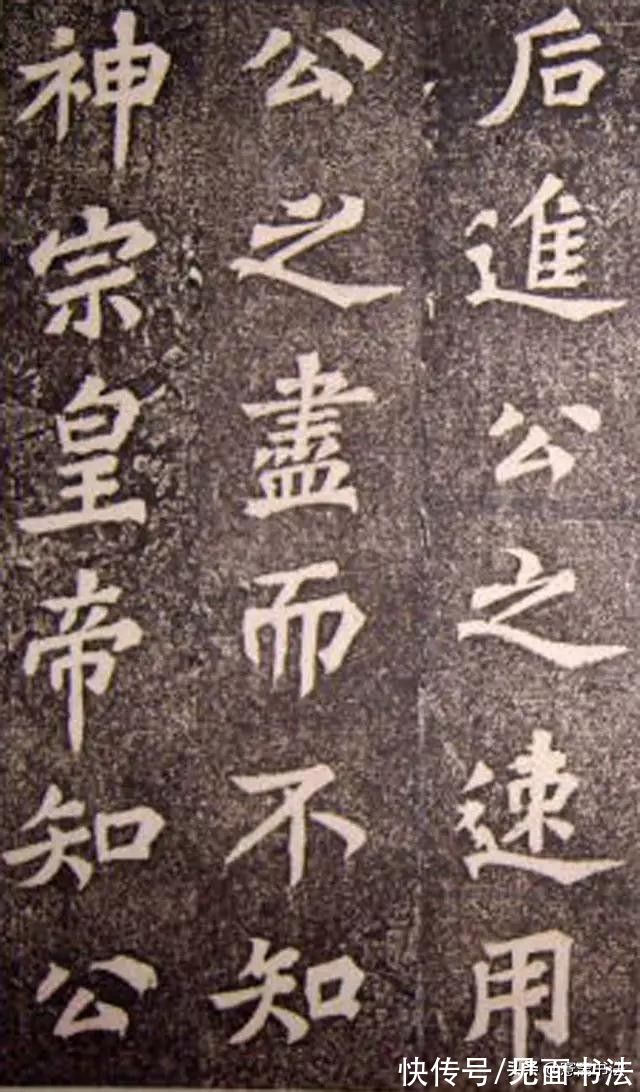 后進公之速用
公之盡而不知
神宗皇帝知公
快传号/见面书法